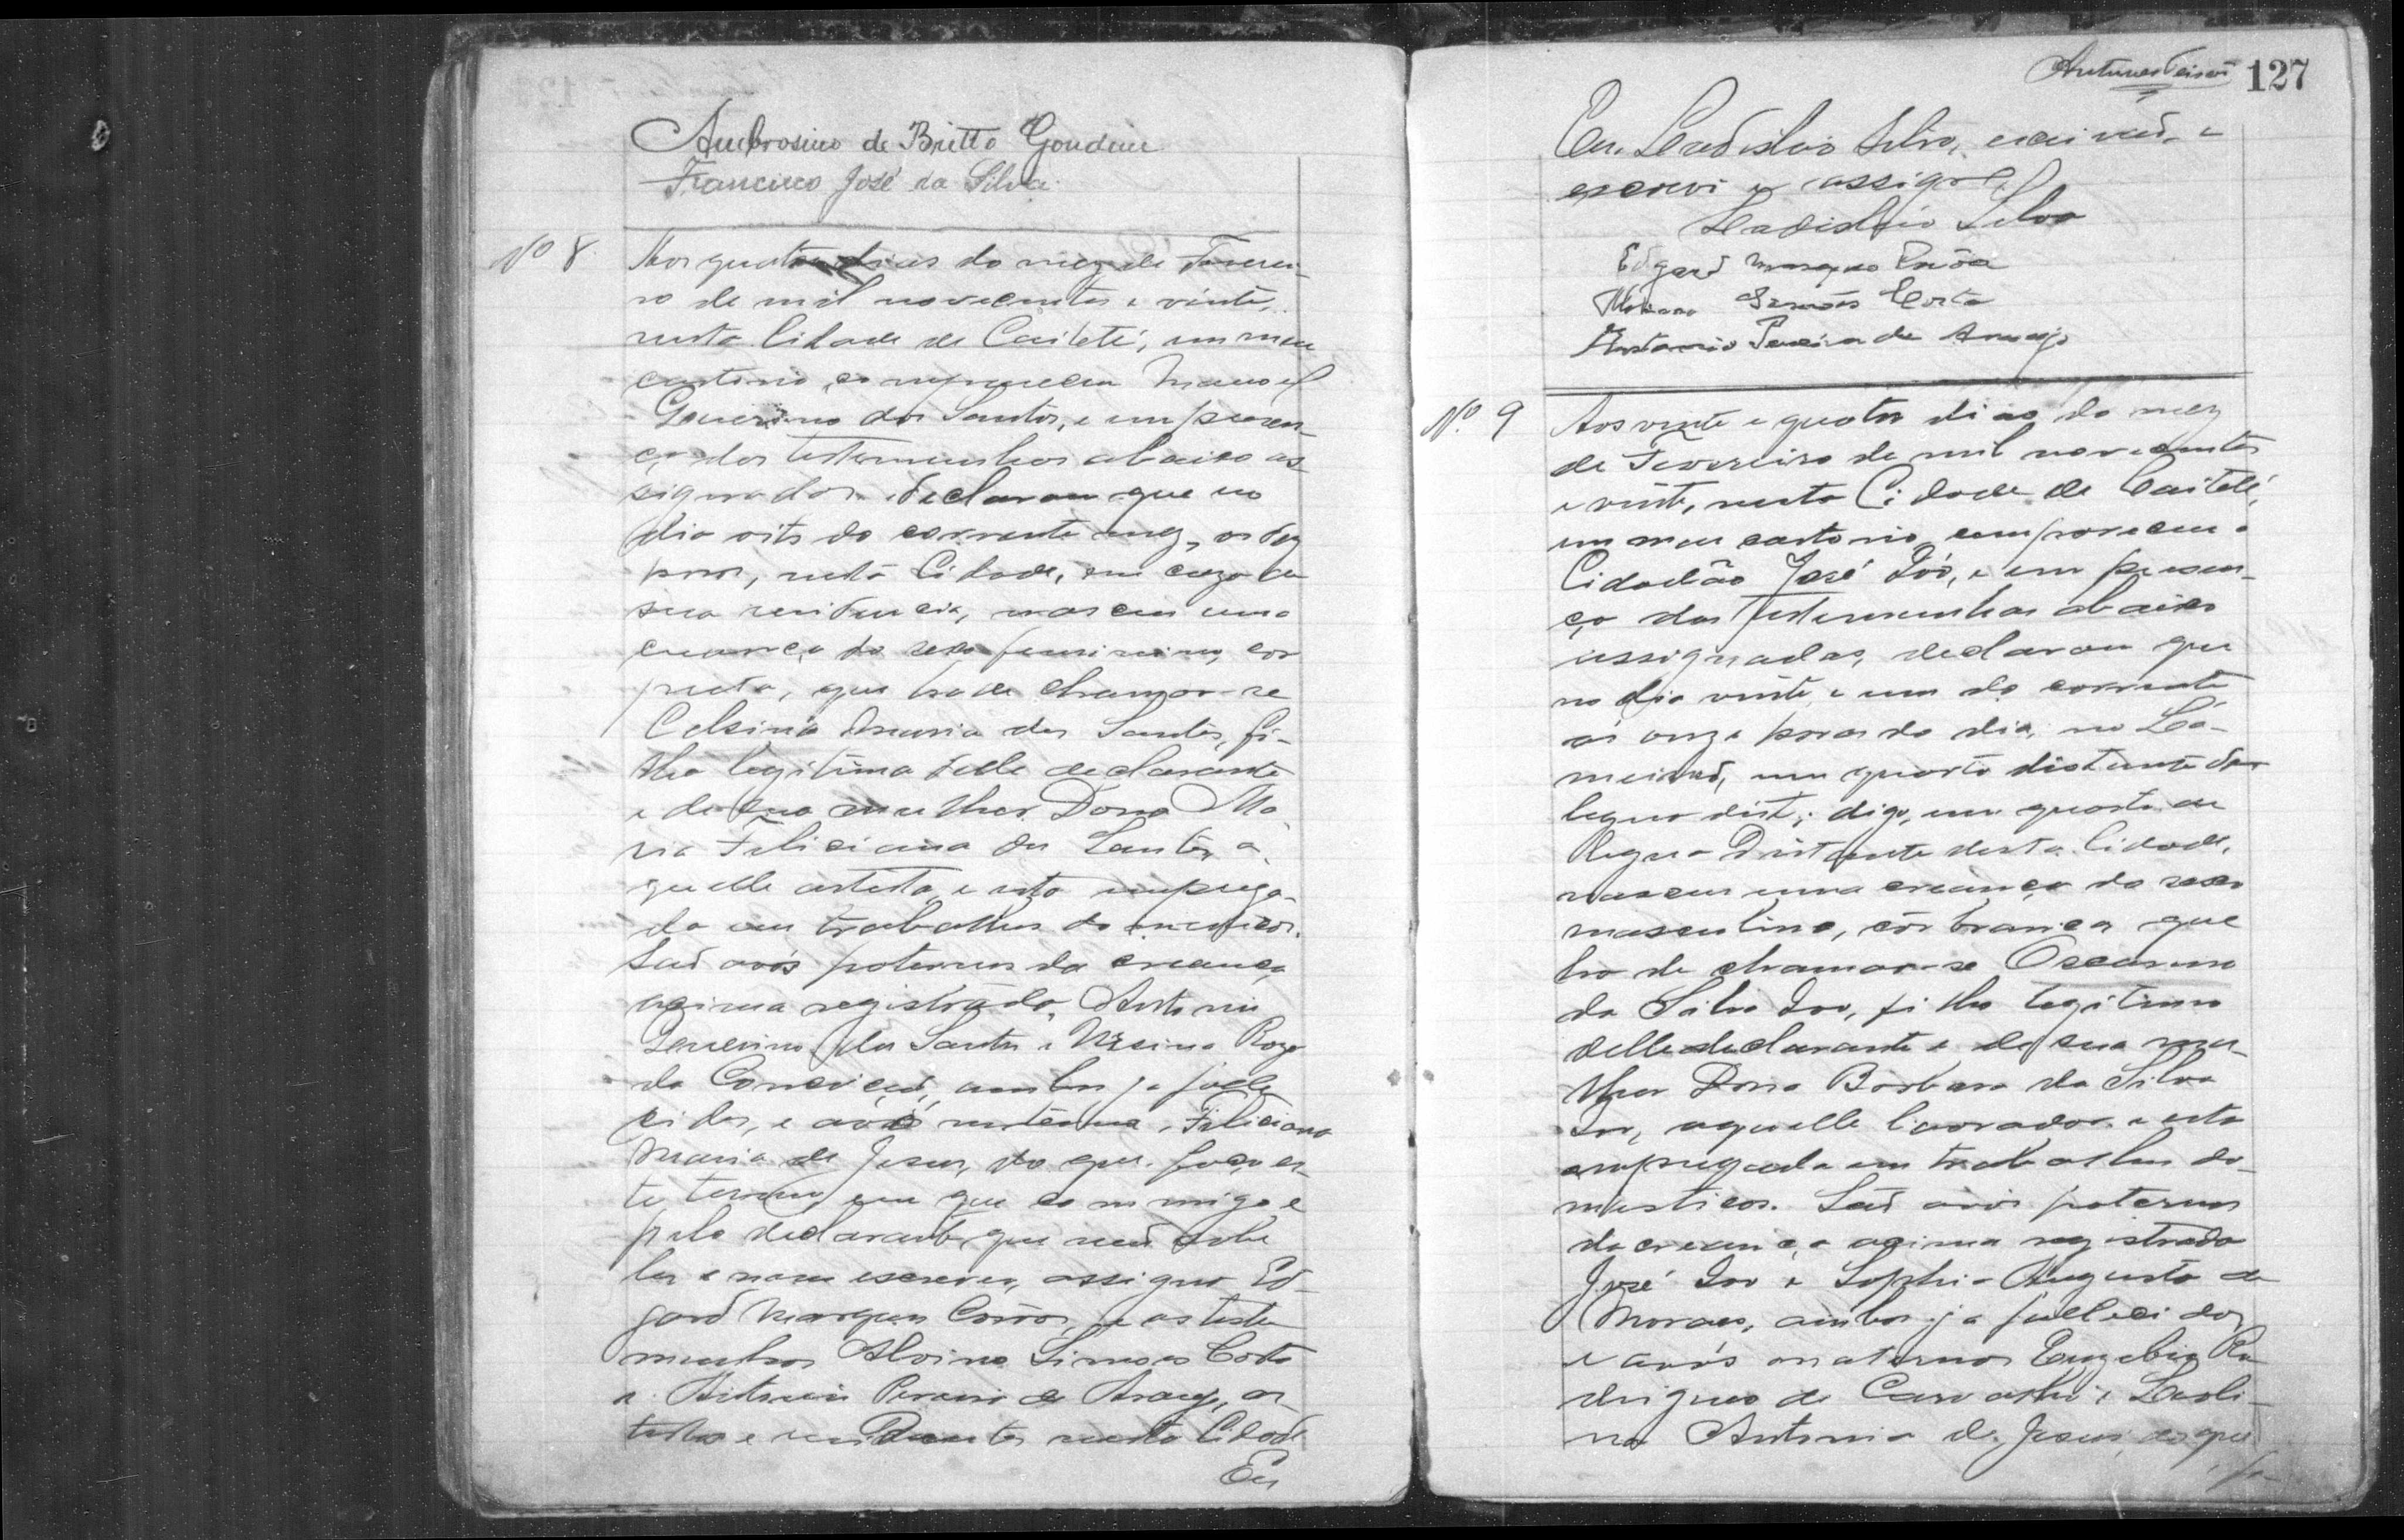 Ambrosino de Britto Gondim
Francisco José da Silva
Nº 8
Aos quatro dias do mez de Feverei-
ro de mil novecentos e vinte,
nesta Cidade de Caiteté, em meu
cartorio, compareceu Manoel
dos Santos, e em presen-
ça das testemunhas abaixo as-
signadas declarou que no
dia oito do corrente mez, as dez
horas, nesta Cidade, em caza de
sua residencia, nasceu uma
creança do sexo feminino, cor
preta, que ha de chamar-se
Celsina Maria dos Santos, fi-
lha legitima delle declarante
e de sua mulher Dona Ma-
ria Feliciana dos Santos, a-
quelle artista, e esta emprega-
da em trabalhos domesticos.
Saõ avós paternos da creança
acima registrada, Antonio
dos Santos e Roza
da Conceiçaõ, ambos ja falle-
cidos, e avó materna, Feliciana
Maria de Jesus, do que faço es-
te termo, em que commigo e
pelo declarante que naõ sabe
ler e nem escrever, assigna Ed-
gard Marques e as teste-
munhas Alvino Simões Costa
e Antonio Pereira de Araujo, ar-
tistas e residentes nesta Cidade
Eu
127
Eu Ladisláo Silva, escrivaõ, e
escrevi e assigno.
Ladisláo Silva
Edgard Marques
Alvino Simões Costa
Antonio Pereira de Araujo
Nº 9
Aos vinte e quatro dias do mez
de Fevereiro de mil novecentos
e vinte, nesta Cidade de Caiteté,
em meu cartorio, compareceu o
Cidadão José Ivo, e em presen-
ça das testemunhas abaixo
assignadas, declarou que
no dia vinte e um do corrente
ás onze horas do dia, no
um quarto distante de
legua dist; digo, um quarto de
legua distante desta Cidade,
nasceu uma creança do sexo
masculino, côr branca que
ha de chamar-se Oscarino
da Silva Ivo, filho legitimo
delle declarante e de sua mu-
lher Dona Barbara da Silva
Ivo, aquelle lavrador e esta
empregada em trabalhos do-
mesticos. Saõ avós paternos
da creança acima registrada
José Ivo e Sophia Augusta de
Moraes, ambos ja fallecidos
e avós maternos Euzebio Ro-
drigues de Carvalho e
Antonia de Jesus, do que
fa-